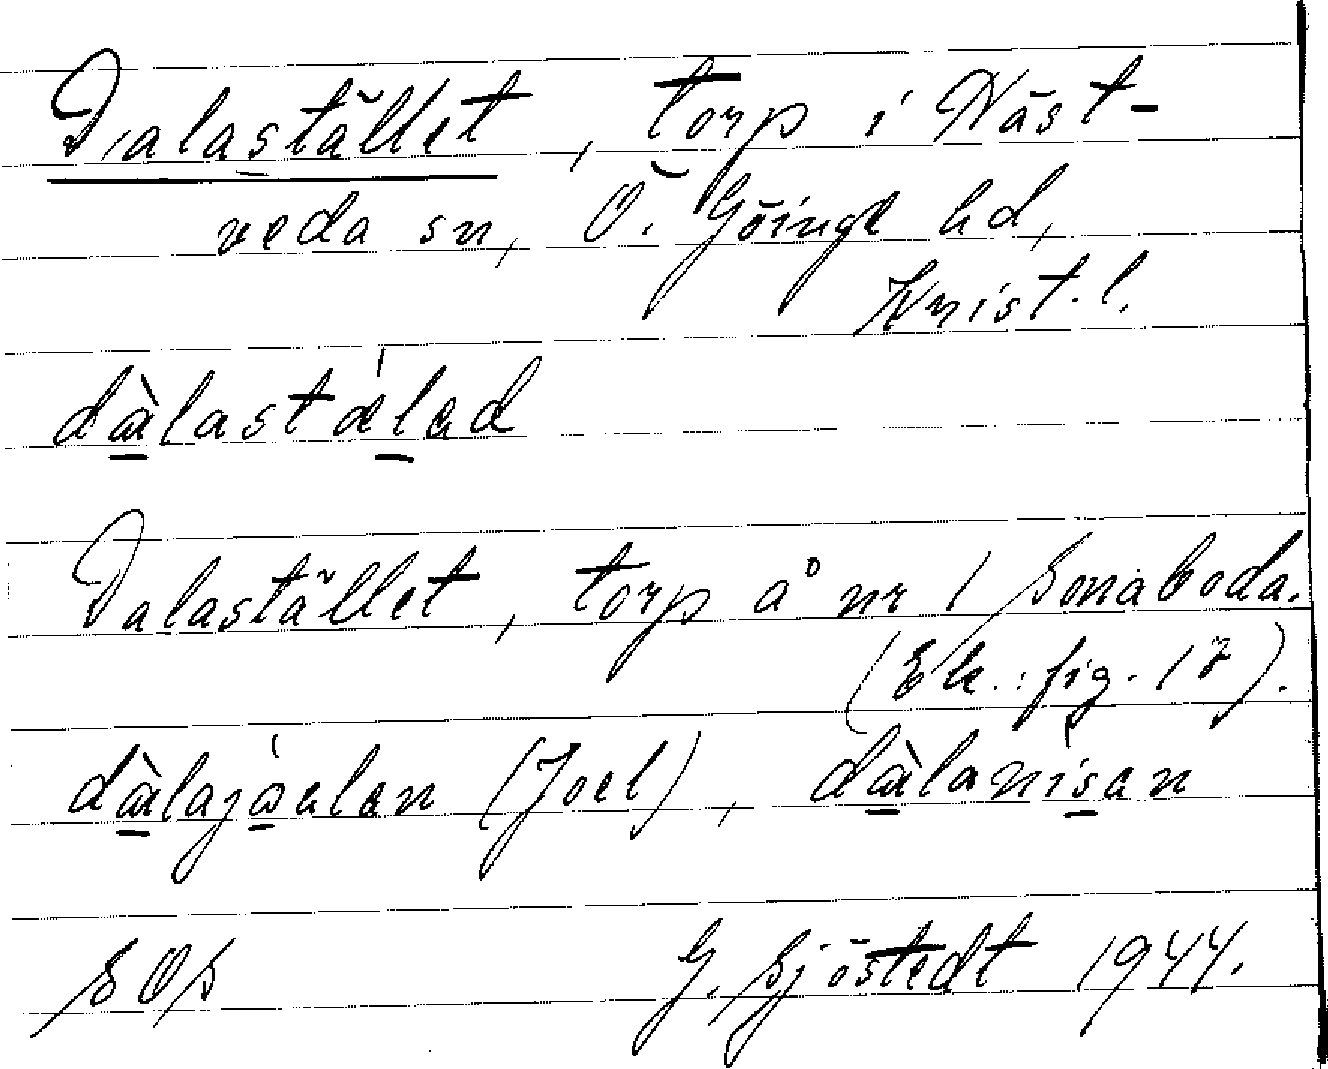 Dalastället, torp i Näst-
veda sn, Ö. Göinge hd,
Krist. l.
dàlastǽlad
Dalastället, torp å nr 1 Sonaboda.
(Ek.: fig. 17).
dàlajóelen (Joel), dàlanísen
SOS G. Sjöstedt 1944.